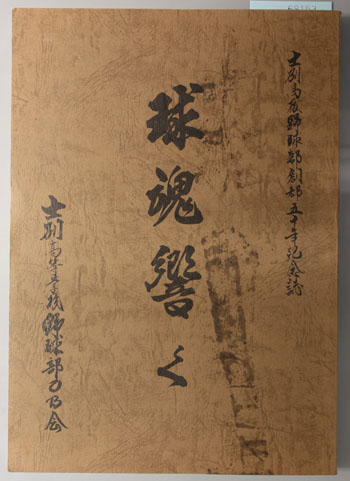 士別高校野球部創部五十年記念誌
球魂響く
士別高等学校野球部OB会
68163